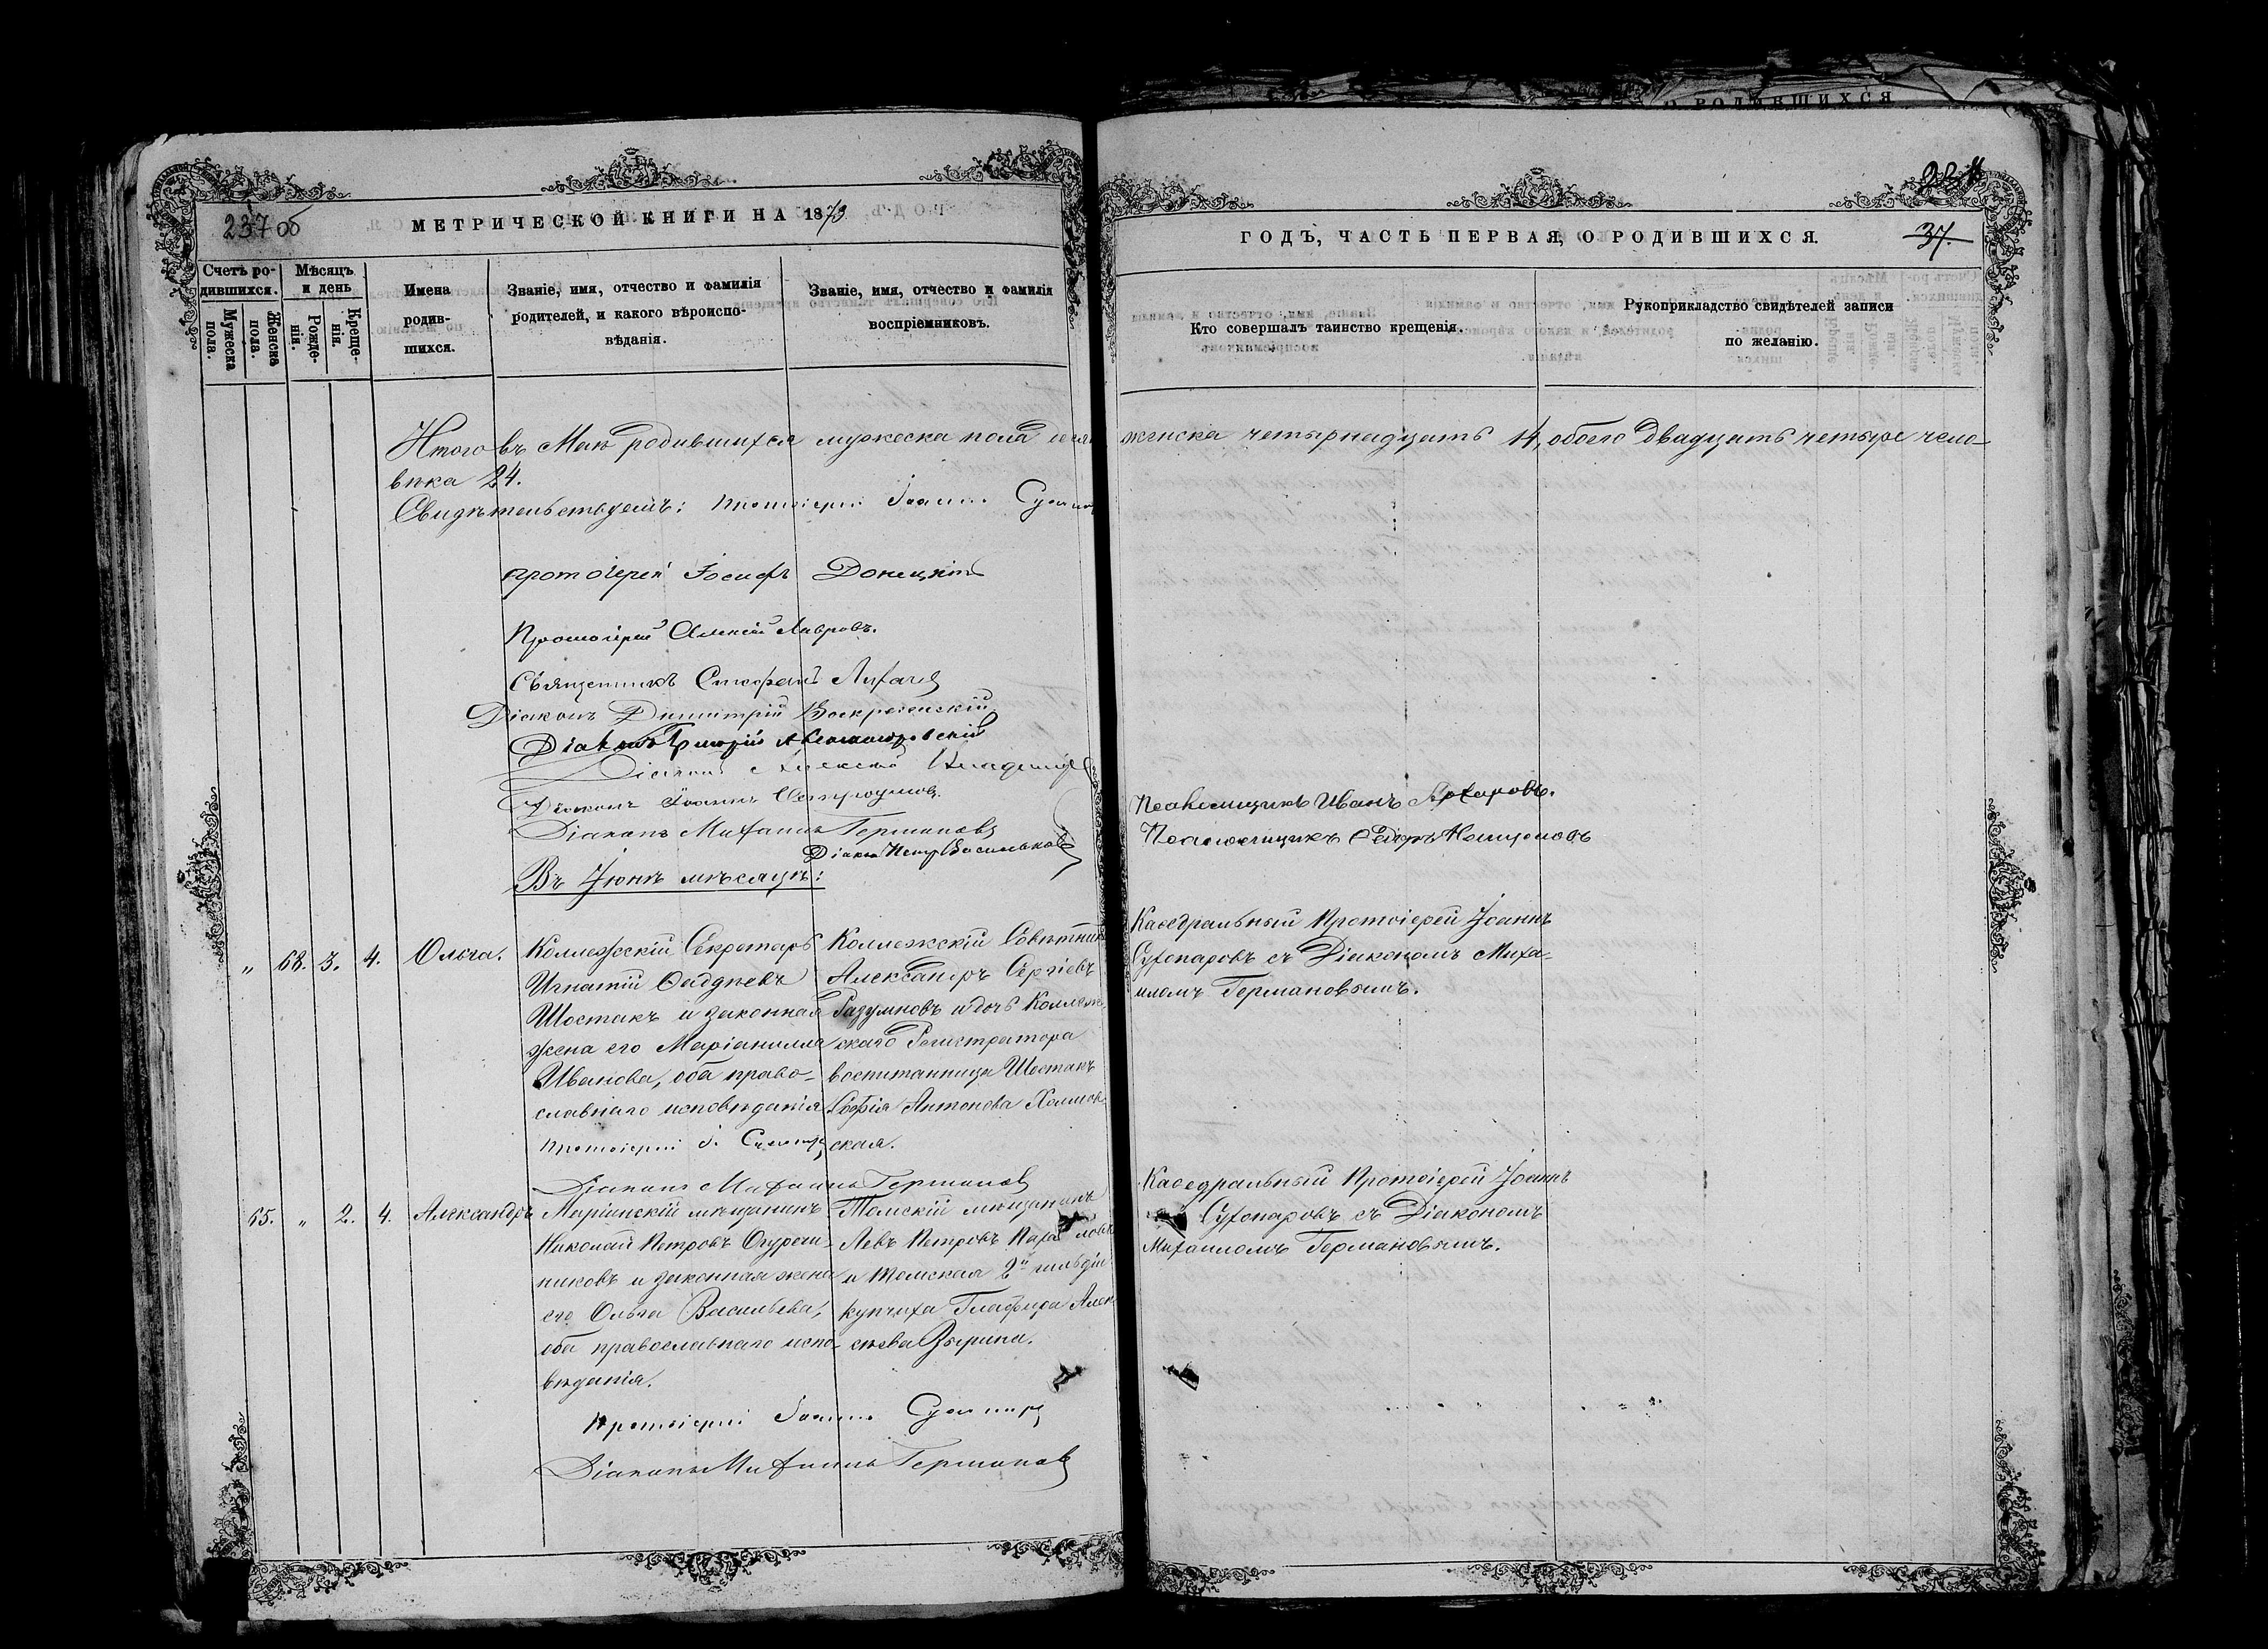 237 об
МЕТРИЧЕСКОЙ КНИГИ НА 1873
Счетъ ро-
дившихся.
Мужеска пола.
Женска пола.
Мѣсяцъ и день
Рожде-
нія.
Креще-
нія.
Имена
родив-
шихся.
Званіе, имя, отчество и фамилія
родителей, и какого вѣроиспо-
вѣданія.
Званіе, имя, отчество и фамилія
воспріемниковъ.
Итого въ Маѣ родившихся мужеска пола
вѣка 24.
Свидѣтельствуемъ: Протоіерей Іоаннъ
Протоіерей Іосифъ Донецкій
Протоіерей Алексій Лавровъ.
Священникъ Стефанъ
Діаконъ Димитрій Воскресенскій
Діаконъ
Діаконъ Алексѣй
Діаконъ Іоаннъ
Діаконъ Михаилъ Германовъ
Діаконъ Петръ Васильковъ
Въ Іюнѣ мѣсяцѣ:
„ 68. 3. 4. Ольга.
Коллежскій Секретарь
Игнатій Фаддѣевъ
Шостакъ и законная
жена его Маріанилла
Иванова, оба право-
славнаго исповѣданія
Протоіерей І.
Коллежскій Совѣтникъ
Александръ Сергіевъ
Разумновъ и дочь Коллеж-
скаго Регистратора
воспитанница Шостакъ
Софія Антонова
ская.
Діаконъ Михаилъ Германовъ
65. „ 2. 4. Александръ
Маріинскій мѣщанинъ
Николай Петровъ Огуреч-
никовъ и законная жена
его Ольга Васильева,
оба православнаго испо-
вѣданія.
Томскій мѣщанинъ
Левъ Петровъ
и Томская 2й гильдіи
купчиха Глафира Алек-
сѣева Зырина.
Протоіерей Іоаннъ
Діаконъ Михаилъ Германовъ
О РОДИВШИХСЯ
ГОДЪ, ЧАСТЬ ПЕРВАЯ, О РОДИВШИХСЯ.
37.
Кто совершалъ таинство крещенія.
Рукоприкладство свидѣтелей записи
по желанію.
женска четырнадцать 14, обоего двадцать четыре чело
Псаломщикъ Иванъ Архаровъ.
Псаломщикъ
Каѳедральный Протоіерей Іоаннъ
Сухопаровъ съ Діакономъ Миха-
иломъ Германовымъ.
Каѳедральный Протоіерей Іоаннъ
Сухопаровъ съ Діакономъ
Михаиломъ Германовымъ.